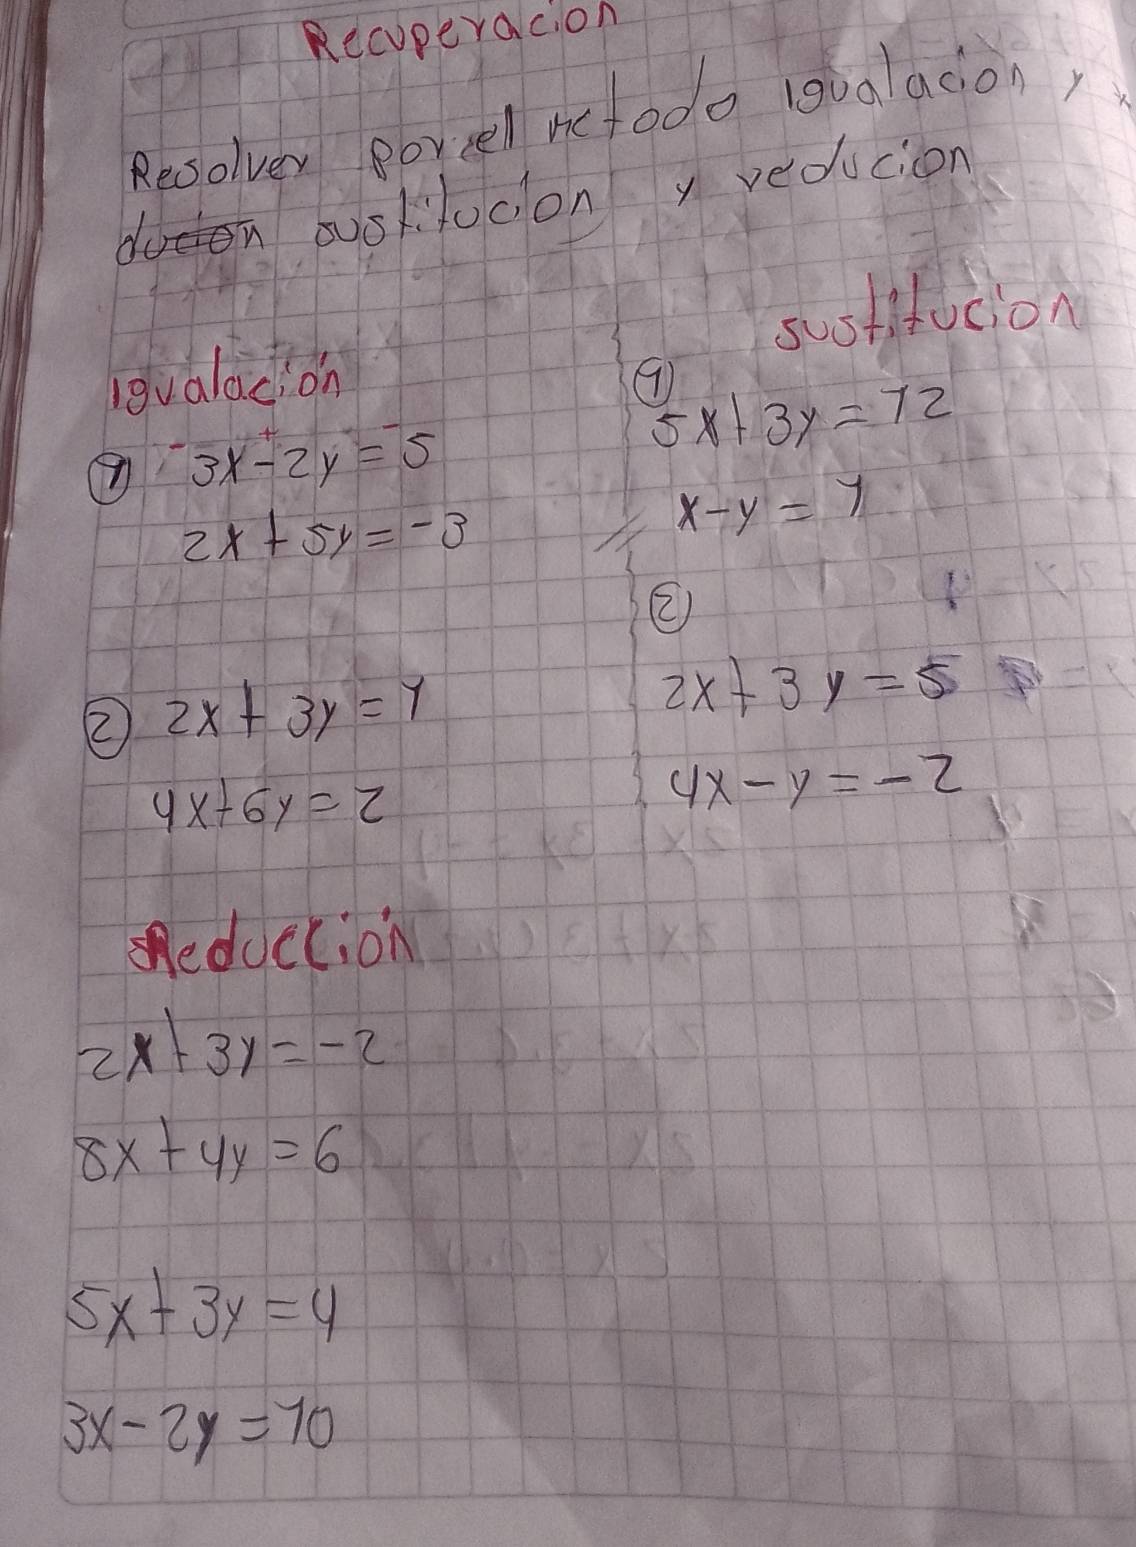 Recuperacion
Resolver por el metodo igualacion y
ducion sustitucion y reducion
Igualación
- + -
① 3x-2y=5
2x+5y=-3
② 2x+3y=1
4x+6y=2
sustitucion
①
5x+3y=12
x-y=1
②
2x+3y=5
4x-y=-2
Reducción
2x+3y=-2
8x+4y=6
5x+3y=4
3x-2y=10